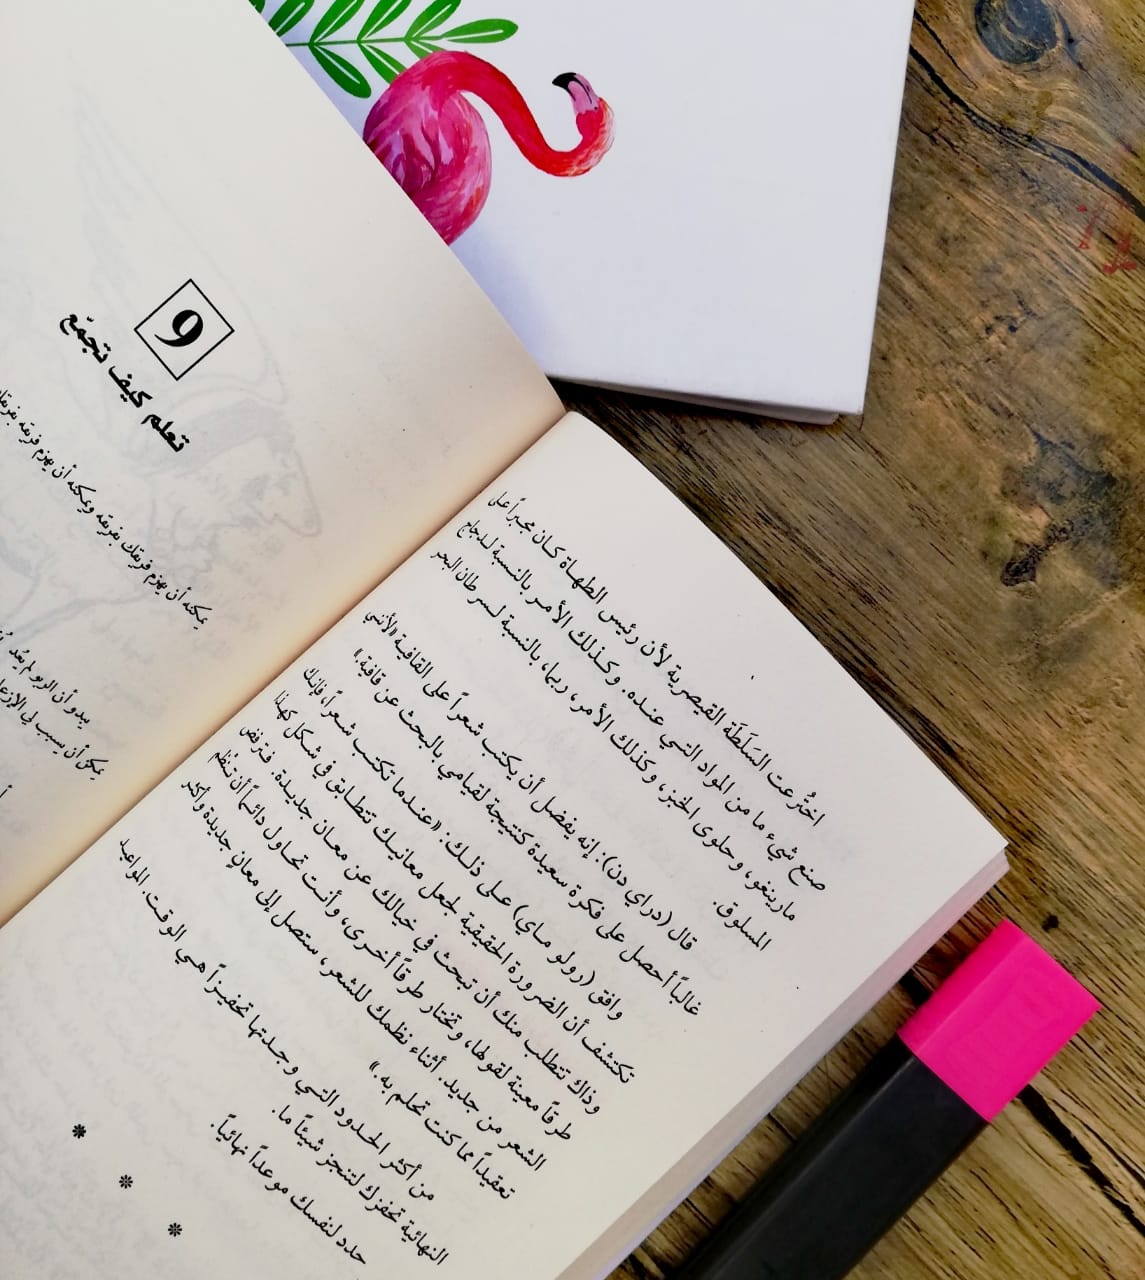 اختُرعت السَلَطَة القيصرية لأن رئيس الطهاة كان مجبراً على
صنع شيء ما من المواد التي عنده. وكذلك الأمر بالنسبة لدجاج
مارينغو، وحلوى الخبز، وكذلك الأمر، ربما، بالنسبة لسرطان البحر
المسلوق.
قال (دراي دن): إنه يفضل أن يكتب شعراً على القافية «لأنني
غالباً أحصل على فكرة سعيدة كنتيجة لقيامي بالبحث عن قافية.»
وافق (رولو ماي) على ذلك: «عندما تكتب شعراً، فإنك
تكتشف أن الضرورة الحقيقية لجعل معانيك تتطابق في شكل كهذا
وذاك تتطلب منك أن تبحث في خيالك عن معانٍ جديدة. فترفض
طرقاً معينة لقولها، وتختار طرقاً أخرى، وأنت تحاول دائماً أن تنظم
الشعر من جديد. أثناء نظمك للشعر، ستصل إلى معانٍ جديدة وأكثر
تعقيداً مما كنت تحلم به.»
من أكثر الحدود التي وجدتها تحفيزاً هي الوقت. المواعيد
النهائية تحفزك لتنجز شيئاً ما.
حدد لنفسك موعداً نهائياً.
* * *
9
تعلم كيف تجمّع
يمكنه أن يهزم فريقك بفريقه ويمكنه أن يهزم فريقه بفريقك
يبدو أن الريو لم يعُد
يمكن أن يسبب لي الإزعاج